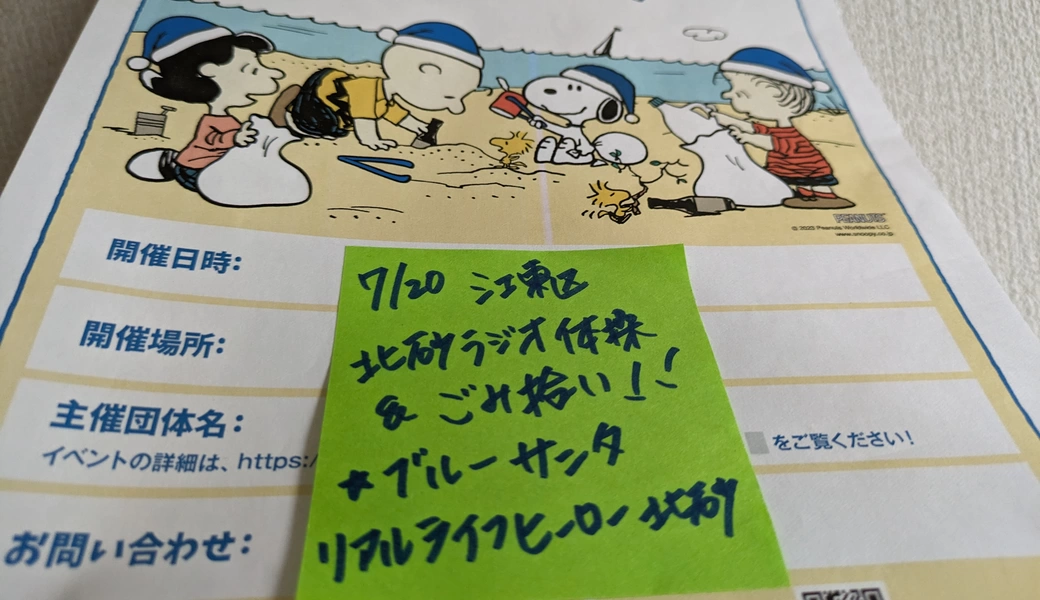 PEANUTS
© 2025 Peanuts Worldwide LLC
www.snoopy.co.jp
開催日時:
開催場所:
主催団体名:
イベントの詳細は、https:/
をご覧ください!
お問い合わせ:
7/20 江東区
北砂ラジオ体操
& ごみ拾い!!
☆ブルーサンタ
リアルライフヒーロー北砂